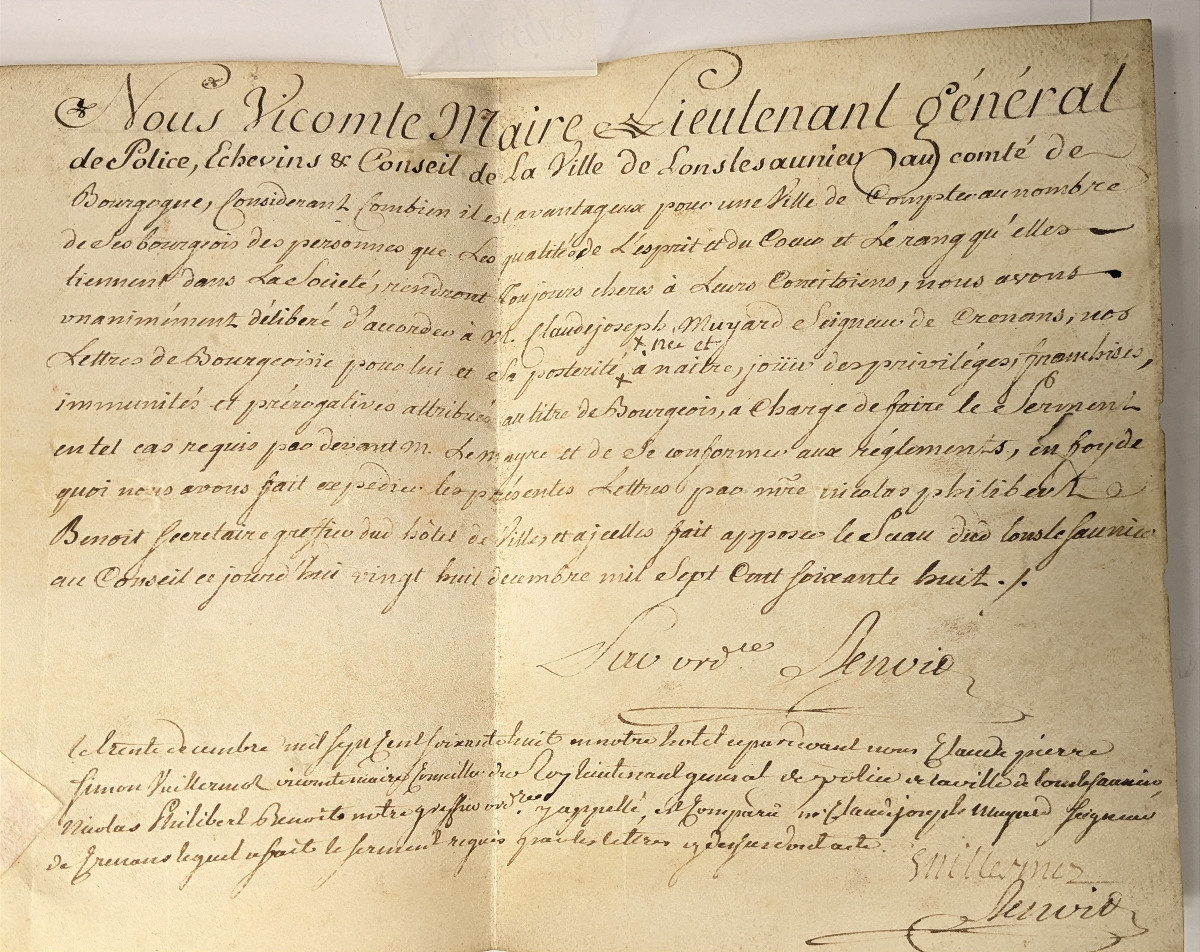 Nous Vicomte Maire Lieutenant général
de Police, Echevins & Conseil de La Ville de Lonslesaunier au comté de
Bourgogne, Considerant Combien il est avantageux pour une Ville de Compter au nombre
de ses bourgeois des personnes que Les qualités de L'esprit et du Coeur et Le rang qu'elles
tiennent dans La Societé, rendront toujours cheres à Leurs Concitoiens, nous avons
unanimément déliberé d'accorder à M. Claudejoseph Muyard Seigneur de Crenans, nos
x née et
Lettres de Bourgeoisie pour lui et Sa posterité x à naitre, joüir des privilèges, franchises,
immunités et prérogatives attribuées au titre de Bourgeois, a Charge de faire le Serment
en tel cas requis par devant M. Le Mayre et de Se conformer aux réglements, en foy de
quoi nous avons fait expédier les présentes Lettres par mtre nicolas philibert
Benoit secretaire greffier dud hôtel de Ville, et a jcelles fait apposer le Sceau dud Lonslesaunier
au Conseil ce jourd'hui vingt huit decembre mil Sept Cent soixante huit ./.
Par ordce
le trente decembre mil sept Cent soixante huit en notre hotel et pardevant nous Claude pierre
Simon Vuillermoz vicomte maire Conseiller du Roy lieutenant general de police de la ville de lons le saunier,
Nicolas Philibert Benoit notre greffier ordre y appellé, est Comparu mr Claude joseph Muyard Seigneur
de Crenans lequel a fait le serment requis par les lettres cy dessus dont acte.
Vuillermoz